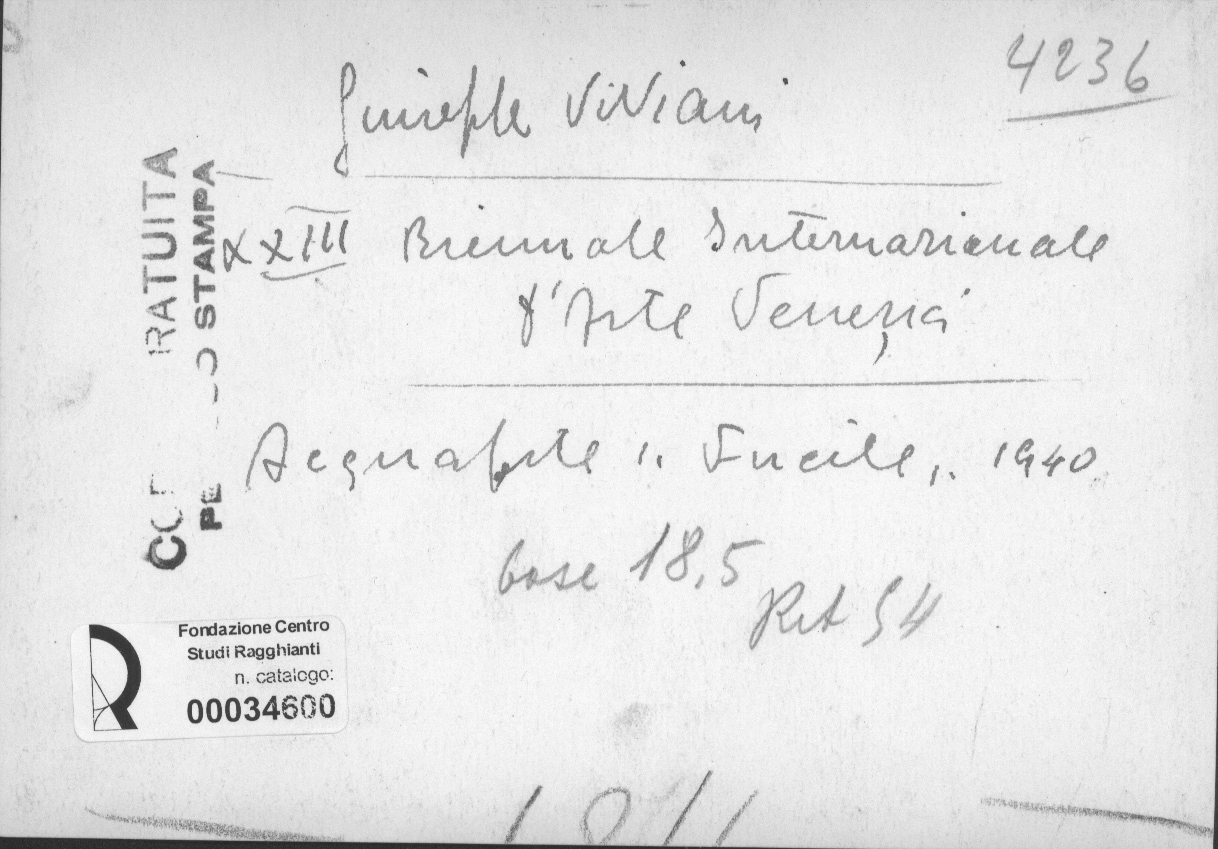 4236
Giuseppe Viviani
XXIII Biennale Internazionale
d'Arte Venezia
Acquaforte " Fucile " 1940
base 18,5
Rit 54
RATUITA
STAMPA
Fondazione Centro
Studi Ragghianti
n. catalogo:
00034600